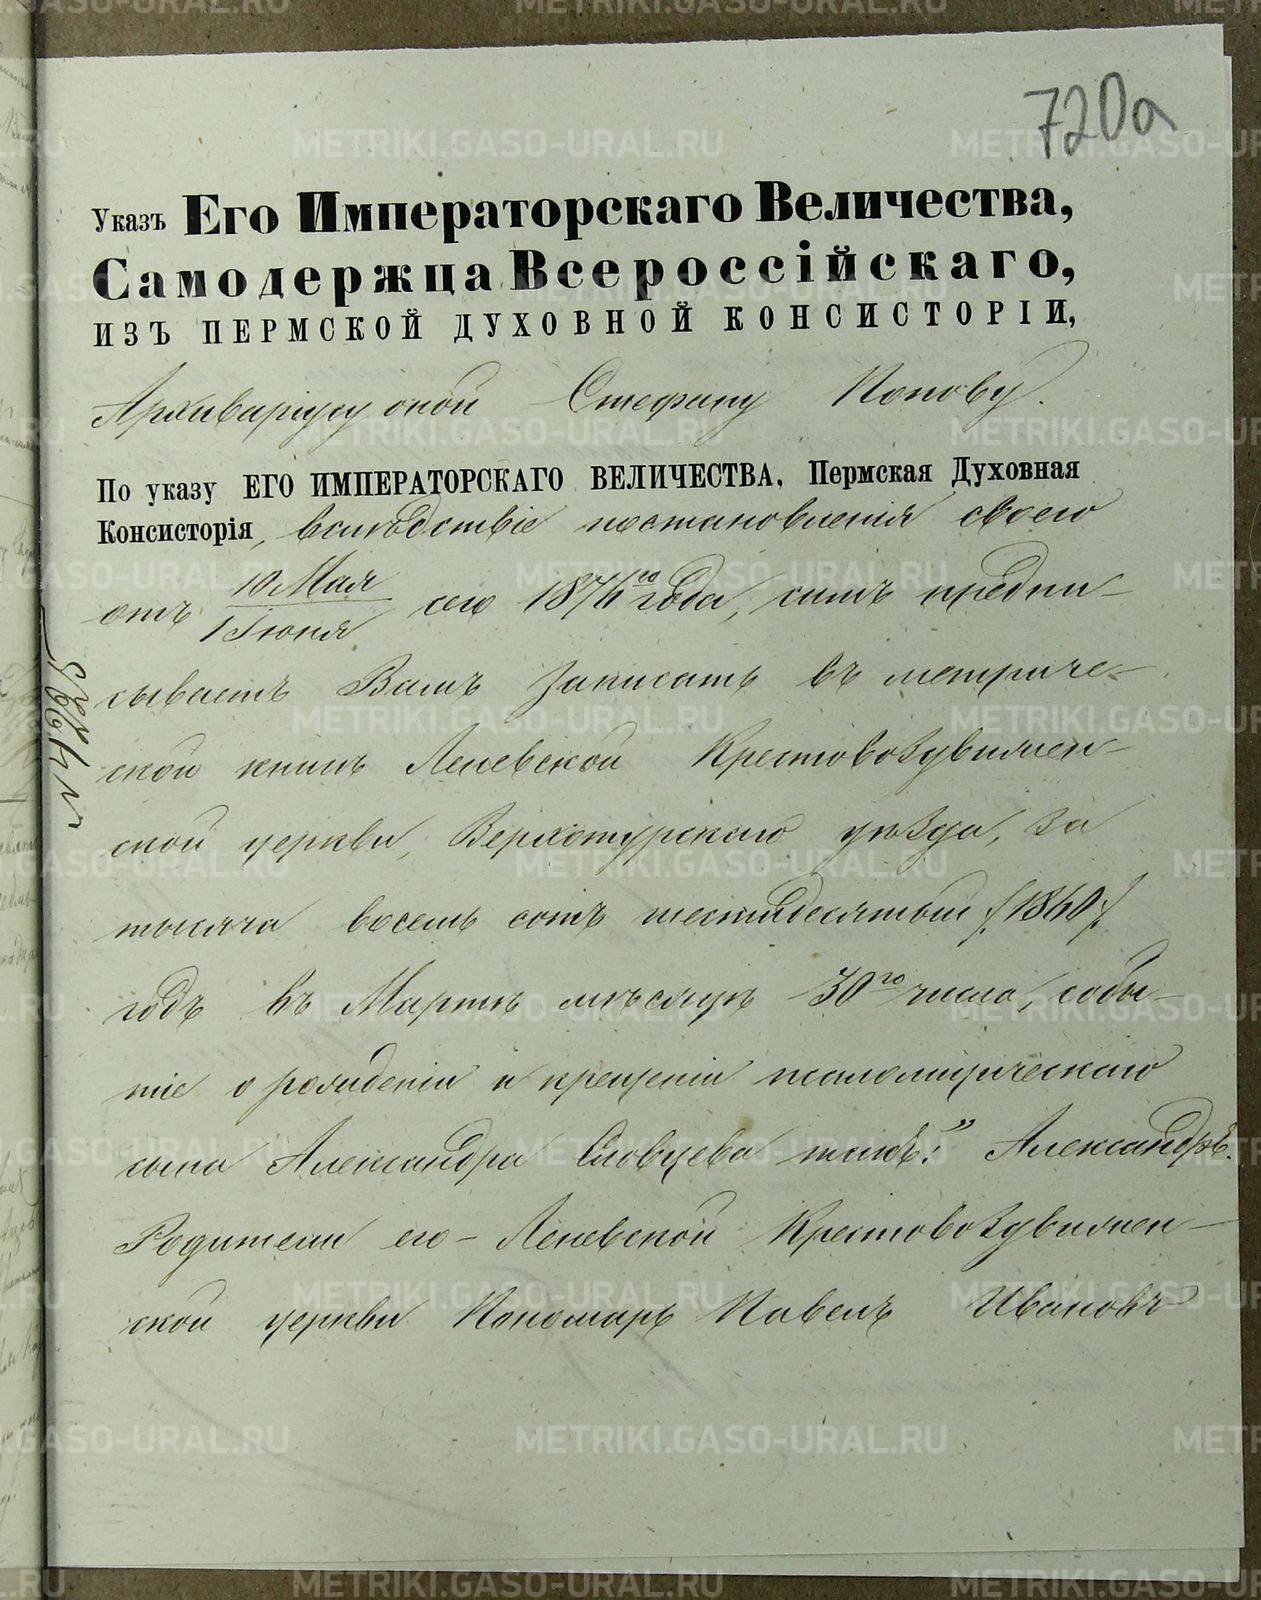 720а
Указъ Его Императорскаго Величества,
Самодержца Всероссійскаго,
ИЗЪ ПЕРМСКОЙ ДУХОВНОЙ КОНСИСТОРІИ,
Архиваріусу оной Стефану Попову.
По указу ЕГО ИМПЕРАТОРСКАГО ВЕЛИЧЕСТВА, Пермская Духовная
Консисторія, вслѣдствіе постановленія своего
отъ 10 Мая / 1 Іюня сего 1876го года, симъ предпи-
сываетъ Вамъ записать въ метриче-
ской книгѣ Леневской Крестовоздвижен-
ской церкви, Верхотурскаго уѣзда, за
тысяча восемь сотъ шестидесятый /1860/
годъ въ Мартѣ мѣсяцѣ 30го числа, собы-
тіе о рожденіи и крещеніи псаломщическаго
сына Александра Словцева такъ: " Александръ.
Родители его - Леневской Крестовоздвижен-
ской церкви Пономарь Павелъ Ивановъ
METRIKI.GASO-URAL.RU